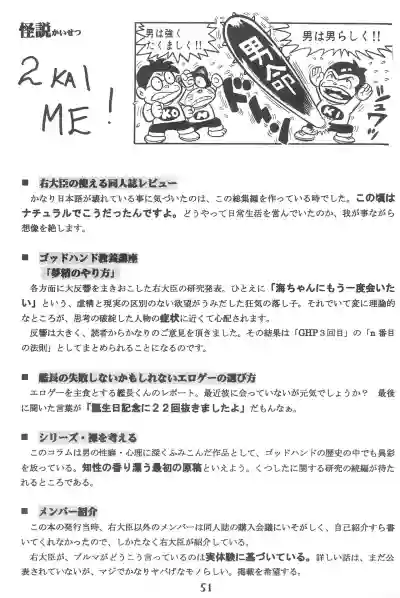 怪説かいせつ
2 KAI
ME!
男は強く
たくましく!!
男は男らしく!!
男命
ドォん!
ジュワッ
■ 右大臣の使える同人誌レビュー
かなり日本語が壊れている事に気づいたのは、この総集編を作っている時でした。この頃は
ナチュラルでこうだったんですよ。どうやって日常生活を営んでいたのか、我が事ながら
想像を絶します。
■ ゴッドハンド教養講座
「夢精のやり方」
各方面に大反響をまきおこした右大臣の研究発表。ひとえに「海ちゃんにもう一度会いた
い」という、虚構と現実の区別のない欲望がうみだした狂気の落し子。それでいて変に理論的
なところが、思考の破綻した人物の症状に近くて心配されます。
反響は大きく、読者からかなりのご意見を頂きました。その結果は「GHP3回目」の「n番目
の法則」としてまとめられることになるのです。
■ 艦長の失敗しないかもしれないエロゲーの選び方
エロゲーを主食とする艦長くんのレポート。最近彼に会っていないが元気でしょうか? 最後
に聞いた言葉が「誕生日記念に22回抜きましたよ」だもんなぁ。
■ シリーズ・裸を考える
このコラムは男の性癖・心理に深くふみこんだ作品として、ゴッドハンドの歴史の中でも異彩
を放っている。知性の香り漂う最初の原稿といえよう。くつしたに関する研究の続編が待た
れるところである。
■ メンバー紹介
この本の発行当時、右大臣以外のメンバーは同人誌の購入会議にいそがしく、自己紹介すら書
いてくれなかったので、しかたなく右大臣が紹介している。
右大臣が、ブルマがどうこう言っているのは実体験に基づいている。詳しい話は、まだ公
表されていないが、マジでかなりヤバげなモノらしい。掲載を希望する。
51